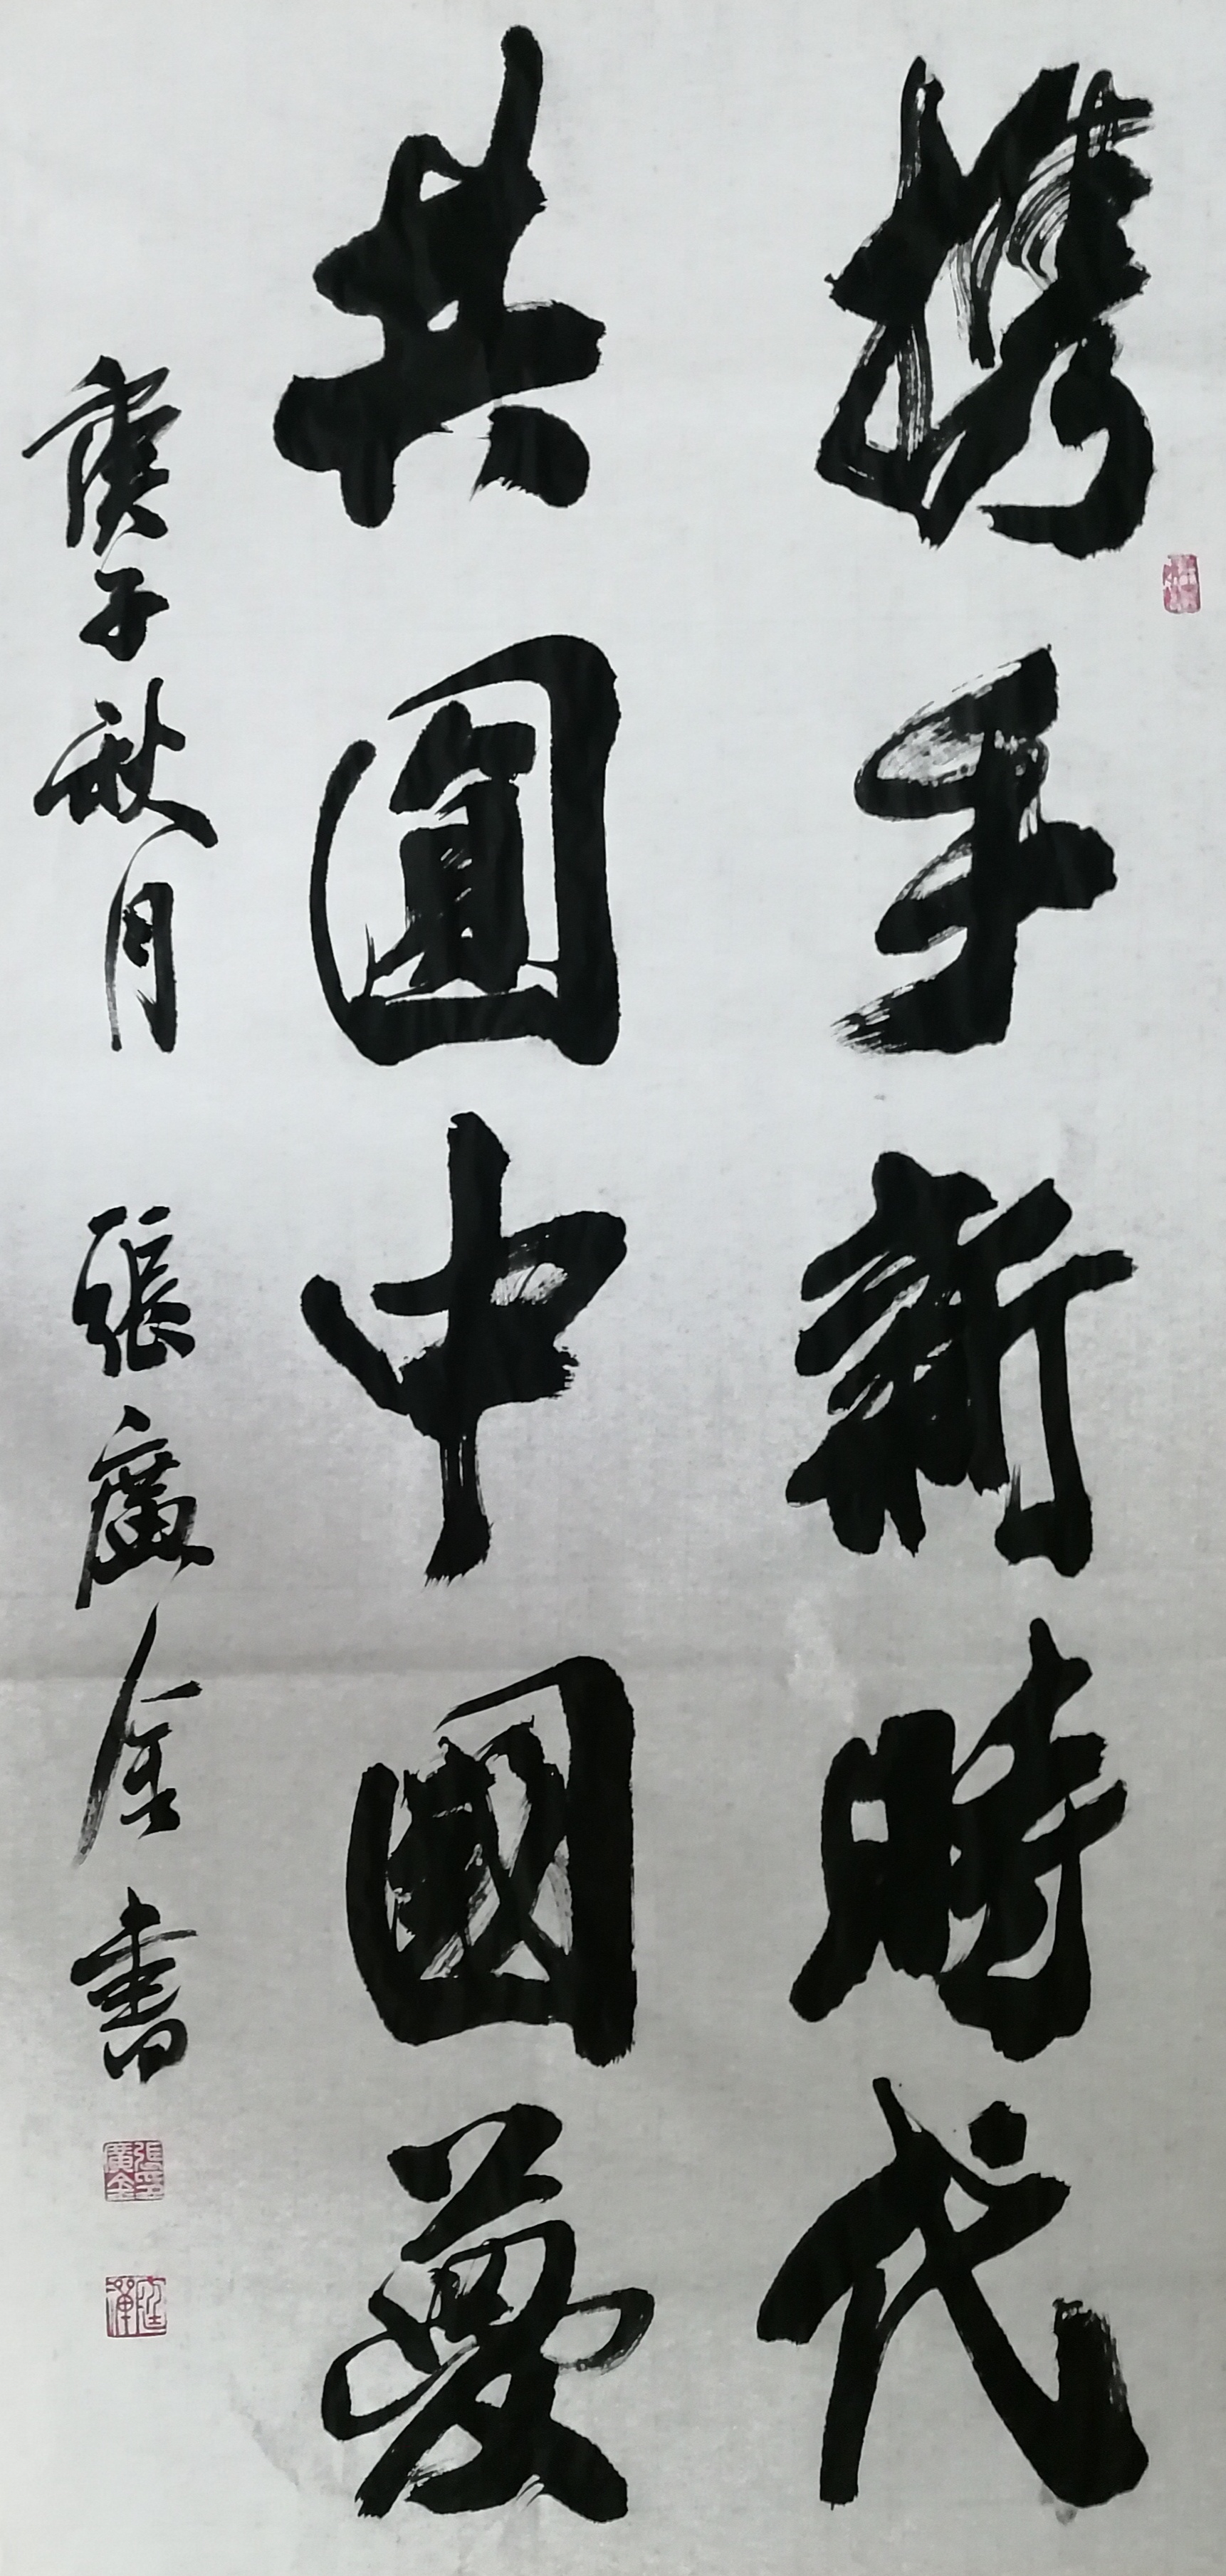 携手新時代
共圓中國夢
庚子秋月 張廣金書
張廣金印